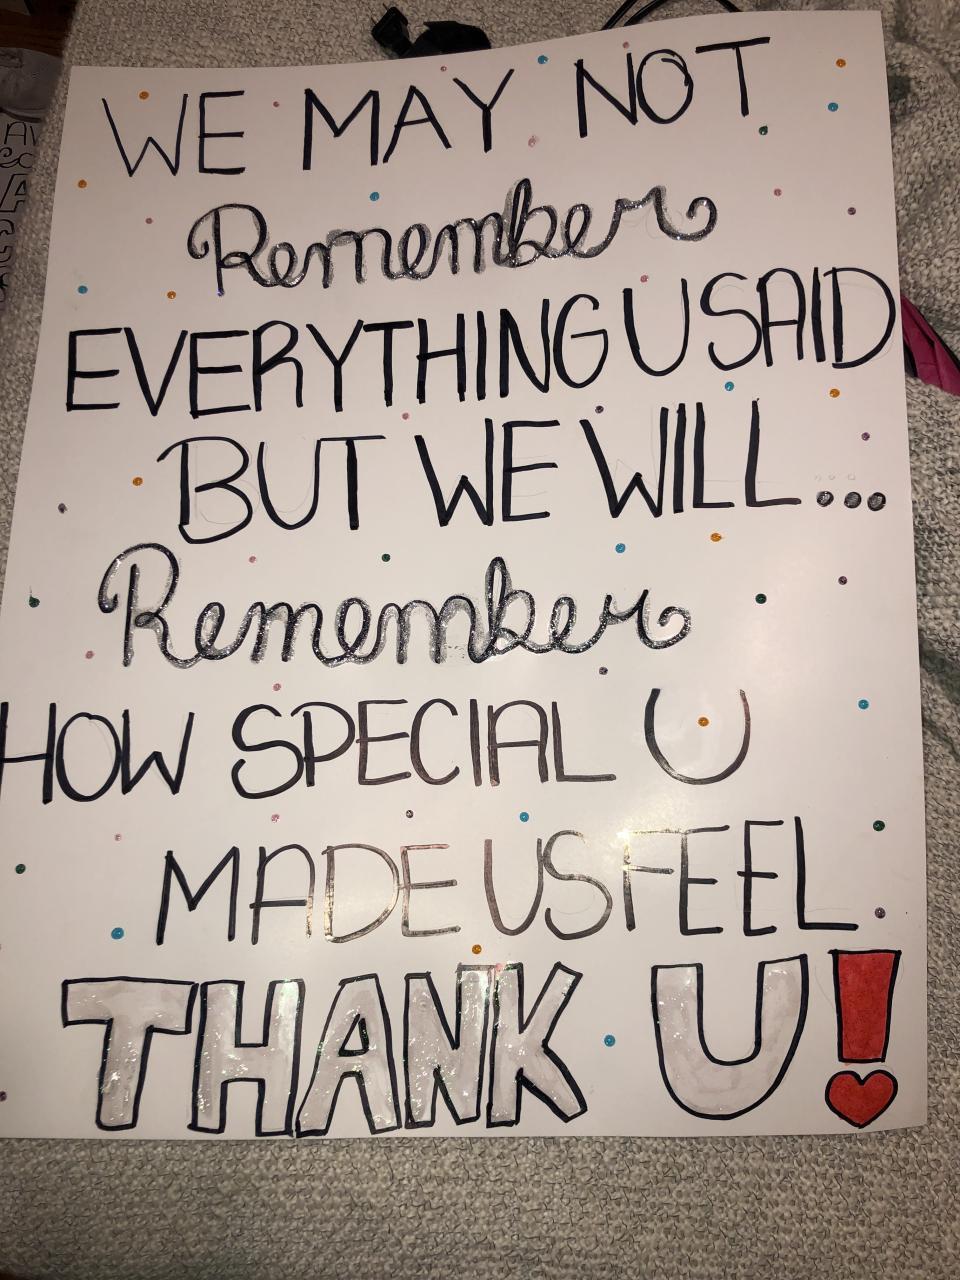 WE MAY NOT
Remember
EVERYTHING U SAID
BUT WE WILL...
Remember
HOW SPECIAL U
MADE US FEEL
THANK U!